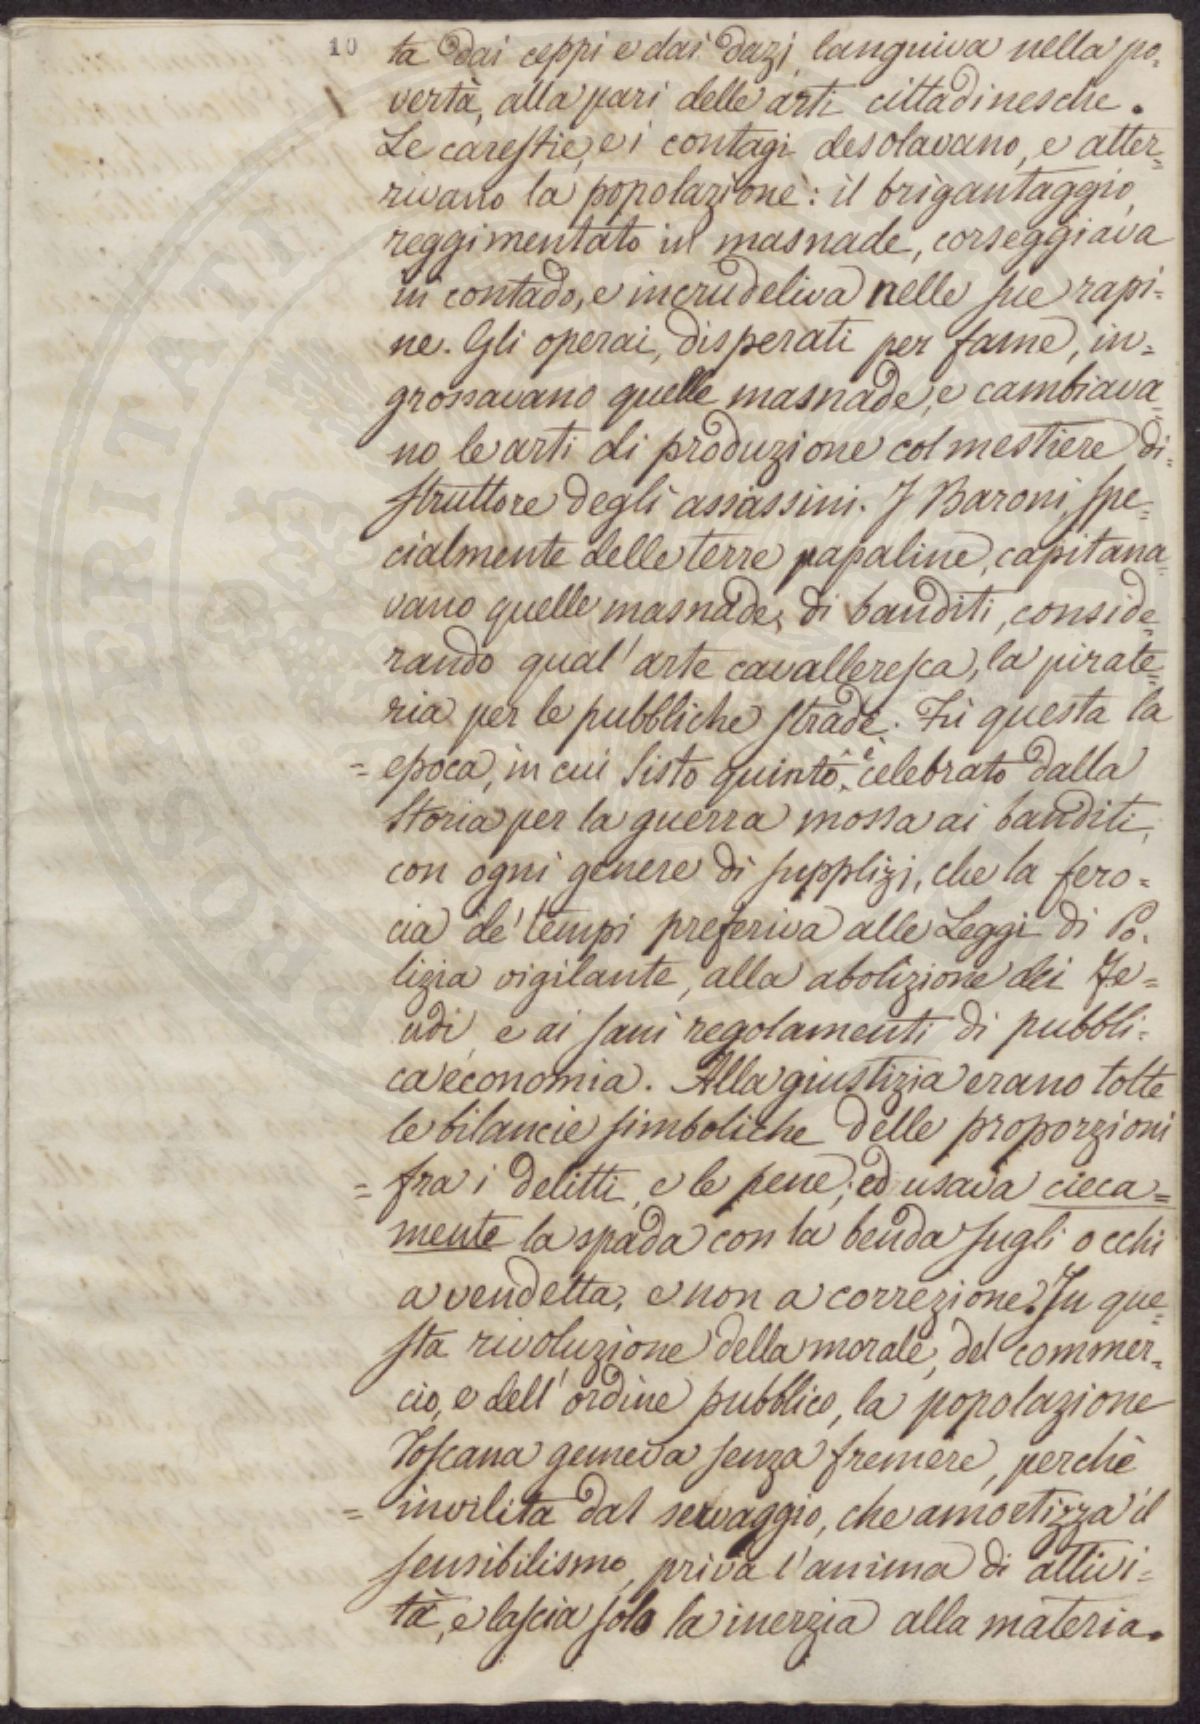 10
ta dai ceppi e dai dazi, languiva nella po-
vertà, alla pari delle arti cittadinesche.
Le carestie, e i contagi desolavano, e atter=
rivano la popolazione: il brigantaggio,
reggimentato in masnade, corseggiava
in contado, e incrudeliva nelle sue rapi=
ne. Gli operai, disperati per fame, in=
grossavano quelle masnade, e cambiava=
no le arti di produzione col mestiere di=
struttore degli assassini. I Baroni, spe=
cialmente delle terre papaline, capitana=
vano quelle masnade, di banditi, conside=
rando qual' arte cavalleresca, la pirate=
ria per le pubbliche strade. Fù questa la
= epoca, in cui Sisto quinto è celebrato dalla
Storia per la guerra mossa ai banditi,
con ogni genere di supplizi, che la fero=
cia de' tempi preferiva alle Leggi di Po=
lizia vigilante, alla abolizione dei Fe=
udi, e ai sani regolamenti di pubbli=
ca economia. Alla giustizia erano tolte
le bilancie simboliche delle proporzioni
= fra i delitti, e le pene; ed usava cieca=
mente la spada con la benda sugli occhi
a vendetta, e non a correzione. In que=
sta rivoluzione della morale, del commer=
cio, e dell' ordine pubblico, la popolazione
Toscana gemeva senza fremere, perchè
= invilita dal servaggio, che amortizza il
sensibilismo, priva l'anima di attivi=
tà, e lascia solo la inerzia alla materia.
PROSPERITATI